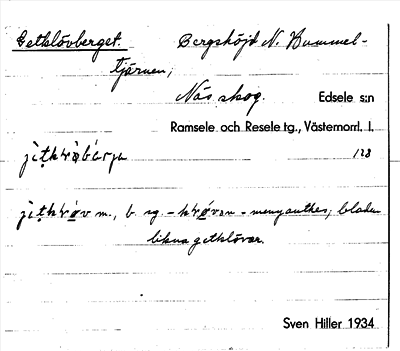 Getklövberget. Bergshöjd N. Hummel-
tjärnen,
Näs skog. Edsele s:n
Ramsele och Resele tg., Västernorrl. l.
128
m., b. sg. - menyanthes; bladen
likna getklövar.
Sven Hiller 1934